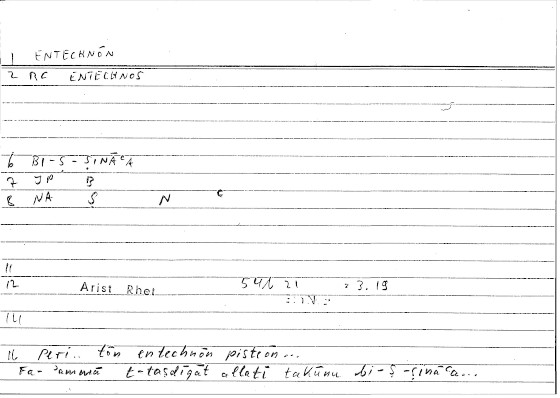 1 ENTECHNŌN
2 AC ENTECHNOS
6 BI-Ṣ-ṢINĀᶜA
7 JP Ḅ
8 NA Ṣ N ᶜ
11
12 Arist Rhet 54b 21 3.19
14
16 Peri.. tōn entechnōn pisteōn...
Fa-ʾammā t-taṣdīqāt allatī takūnu bi-ṣ-ṣināᶜa...